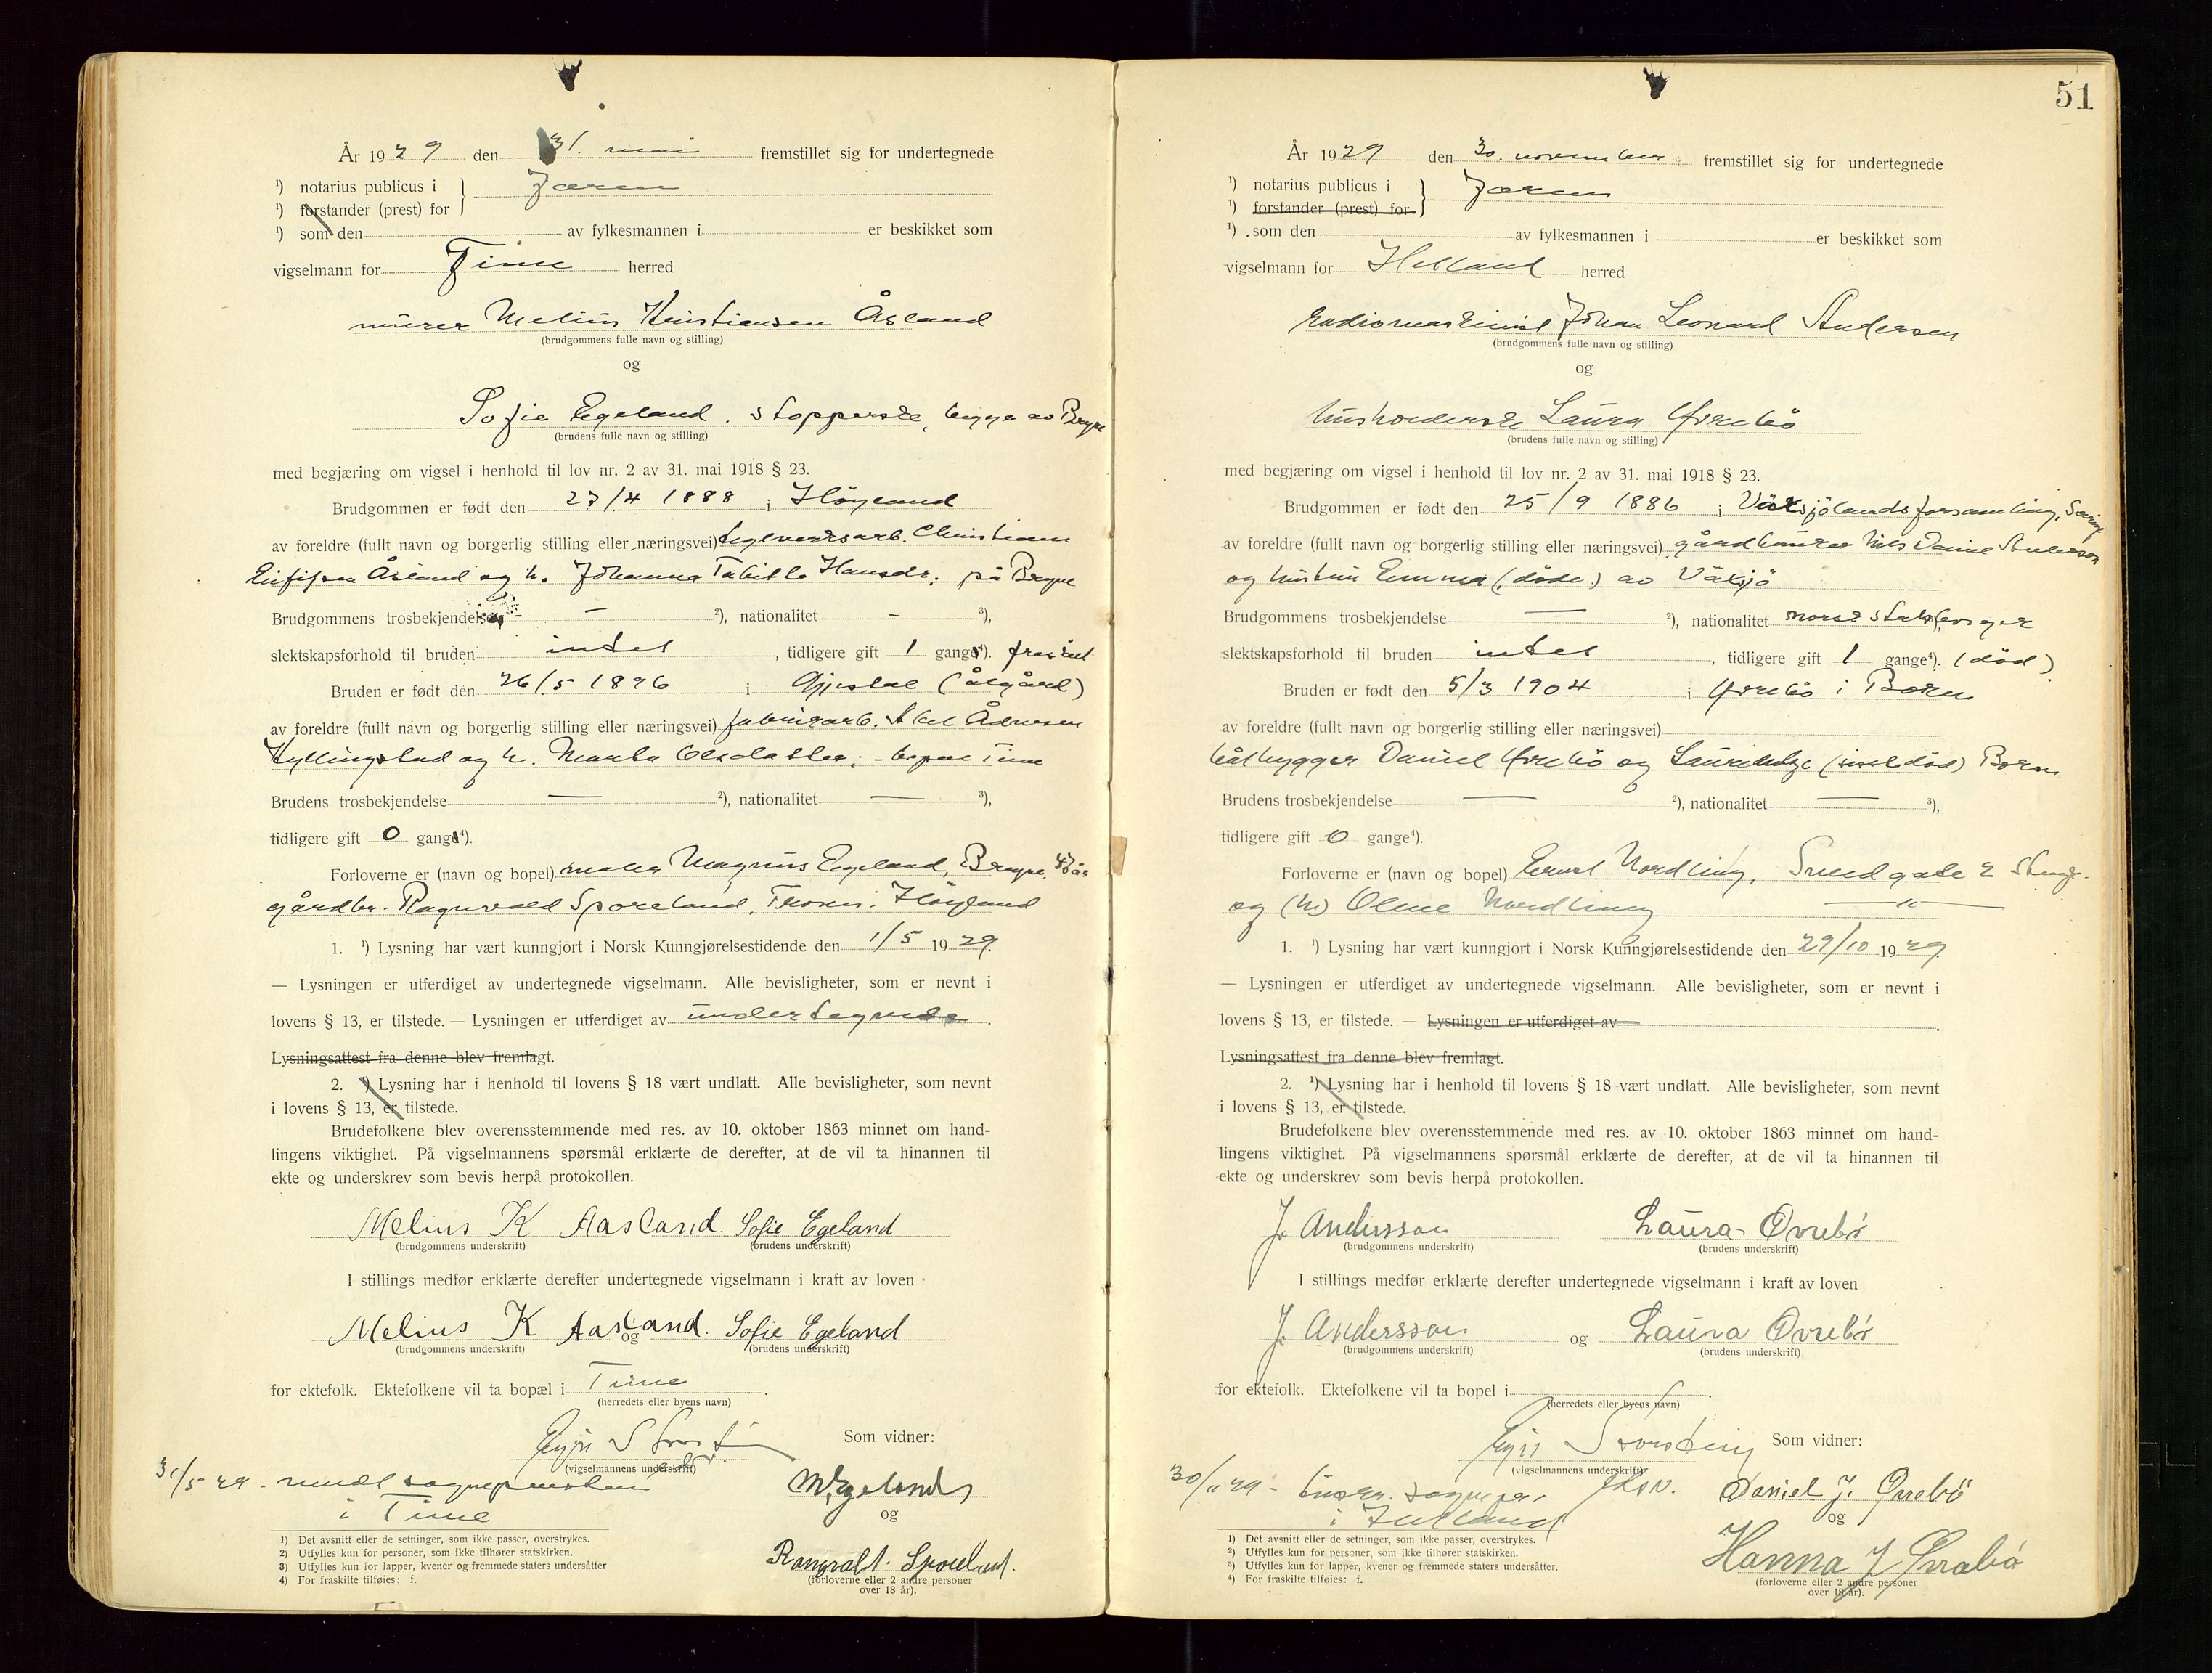 År 1929 den 31. mai fremstillet sig for undertegnede
¹) notarius publicus i } Jæren
¹) forstander (prest) for
¹) som den av fylkesmannen i er beskikket som
vigselmann for Time herred
murer Melius Kristiansen Åsland
(brudgommens fulle navn og stilling)
og
Sofie Egeland. stopperske, begge av Bryne
(brudens fulle navn og stilling)
med begjæring om vigsel i henhold til lov nr. 2 av 31. mai 1918 § 23.
Brudgommen er født den 27/4 1888 i Høyland
av foreldre (fullt navn og borgerlig stilling eller næringsvei) teglverksarb. Christian
Åsland og h. Johanna Tabitta Hansdr. på Bryne
Brudgommens trosbekjendelse — ²), nationalitet - ³),
slektskapsforhold til bruden intet , tidligere gift 1 gang⁴). fraskilt
Bruden er født den 26/5 1896 i Gjestal (Ålgård)
av foreldre (fullt navn og borgerlig stilling eller næringsvei) fabrikarb.
Kyllingstad og h. Marta Olsdatter; - Time
Brudens trosbekjendelse — ²), nationalitet — ³),
tidligere gift 0 gang⁴).
Forloverne er (navn og bopel) maler Magnus Egeland, Bryne,
gårdbr. Ragnvald Sporeland, Høyland
1. ¹) Lysning har vært kunngjort i Norsk Kunngjørelsestidende den 1/5 1929.
— Lysningen er utferdiget av undertegnede vigselmann. Alle bevisligheter, som er nevnt i
lovens § 13, er tilstede. — Lysningen er utferdiget av undertegnede.
Lysningsattest fra denne blev fremlagt.
2. ¹) Lysning har i henhold til lovens § 18 vært undlatt. Alle bevisligheter, som nevnt
i lovens § 13, er tilstede.
Brudefolkene blev overensstemmende med res. av 10. oktober 1863 minnet om hand-
lingens viktighet. På vigselmannens spørsmål erklærte de derefter, at de vil ta hinannen til
ekte og underskrev som bevis herpå protokollen.
Melius K Aasland. Sofie Egeland
(brudgommens underskrift) (brudens underskrift)
I stillings medfør erklærte derefter undertegnede vigselmann i kraft av loven
Melius K Aasland. Sofie Egeland
og
(brudgommens underskrift) (brudens underskrift)
for ektefolk. Ektefolkene vil ta bopæl i Time.
(herredets eller byens navn)
Som vidner:
(vigselmannens underskrift)
31/5 29. meddt sognepresten
i Time
M Egeland
og
Rangvalt. Sporeland.
(forloverne eller 2 andre personer
over 18 år).
1) Det avsnitt eller de setninger, som ikke passer, overstrykes.
2) Utfylles kun for personer, som ikke tilhører statskirken.
3) Utfylles kun for lapper, kvener og fremmede staters undersåtter
4) For fraskilte tilføies: f.
51
År 1929 den 30. november fremstillet sig for undertegnede
¹) notarius publicus i } Jæren
¹) forstander (prest) for
¹) som den av fylkesmannen i er beskikket som
vigselmann for Hetland herred
radiomaskinist Johan Leonard Andersen
(brudgommens fulle navn og stilling)
og
husholderske Laura Øvrebö
(brudens fulle navn og stilling)
med begjæring om vigsel i henhold til lov nr. 2 av 31. mai 1918 § 23.
Brudgommen er født den 25/9 1886 i Växsjölandsforsamling,
av foreldre (fullt navn og borgerlig stilling eller næringsvei) gårdbruker Nils Daniel Anderson
og hustru Emma (døde) av Växjö
Brudgommens trosbekjendelse — ²), nationalitet norsk statsborger
slektskapsforhold til bruden intet , tidligere gift 1 gange⁴). (död)
Bruden er født den 5/3 1904 i Øvrebö i Bøkn
av foreldre (fullt navn og borgerlig stilling eller næringsvei)
båtbygger Daniel Øvrebö og
Brudens trosbekjendelse — ²), nationalitet — ³),
tidligere gift 0 gange⁴).
Forloverne er (navn og bopel) Ernst Nordling, Sundgate 2
og (h) Oline Nordling — " —
1. ¹) Lysning har vært kunngjort i Norsk Kunngjørelsestidende den 29/10 1929.
— Lysningen er utferdiget av undertegnede vigselmann. Alle bevisligheter, som er nevnt i
lovens § 13, er tilstede. — Lysningen er utferdiget av .
Lysningsattest fra denne blev fremlagt.
2. ¹) Lysning har i henhold til lovens § 18 vært undlatt. Alle bevisligheter, som nevnt
i lovens § 13, er tilstede.
Brudefolkene blev overensstemmende med res. av 10. oktober 1863 minnet om hand-
lingens viktighet. På vigselmannens spørsmål erklærte de derefter, at de vil ta hinannen til
ekte og underskrev som bevis herpå protokollen.
J. Andersson Laura Øvrebö
(brudgommens underskrift) (brudens underskrift)
I stillings medfør erklærte derefter undertegnede vigselmann i kraft av loven
J. Andersson og Laura Øvrebö
(brudgommens underskrift) (brudens underskrift)
for ektefolk. Ektefolkene vil ta bopel i .
(herredets eller byens navn)
Som vidner:
(vigselmannens underskrift)
30/11 29 - sognepr.
i Hetland
Daniel J. Øvrebö
og
Hanna J Øvrebö
(forloverne eller 2 andre personer
over 18 år).
1) Det avsnitt eller de setninger, som ikke passer, overstrykes.
2) Utfylles kun for personer, som ikke tilhører statskirken.
3) Utfylles kun for lapper, kvener og fremmede staters undersåtter.
4) For fraskilte tilføies: f.